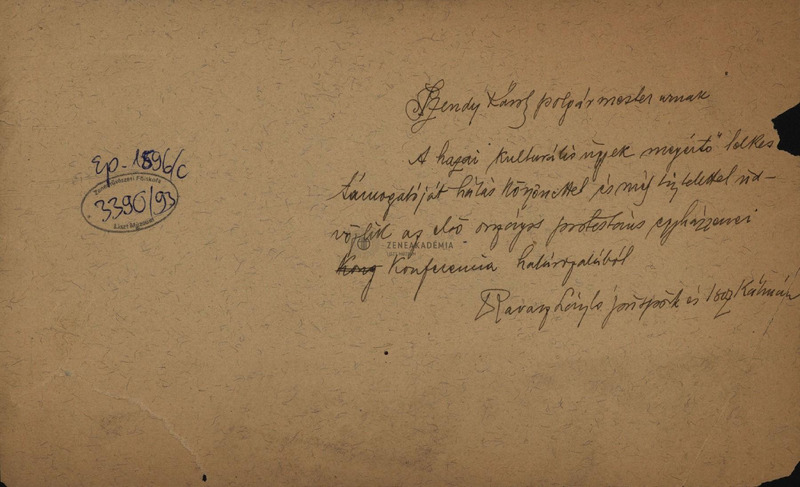 Szendy Károly polgármester urnak
A hazai kulturális ügyek megértő lelkes
támogatóját hálás köszönettel és mély tisztelettel üd-
vözlik az első országos protestáns egyházzenei
Kong Konferencia határozatából
Ravasz László püspök és Isoz Kálmán
Ep-1896/c
Zeneművészeti Főiskola
3390/93
Liszt Múzeum
ZENEAKADÉMIA